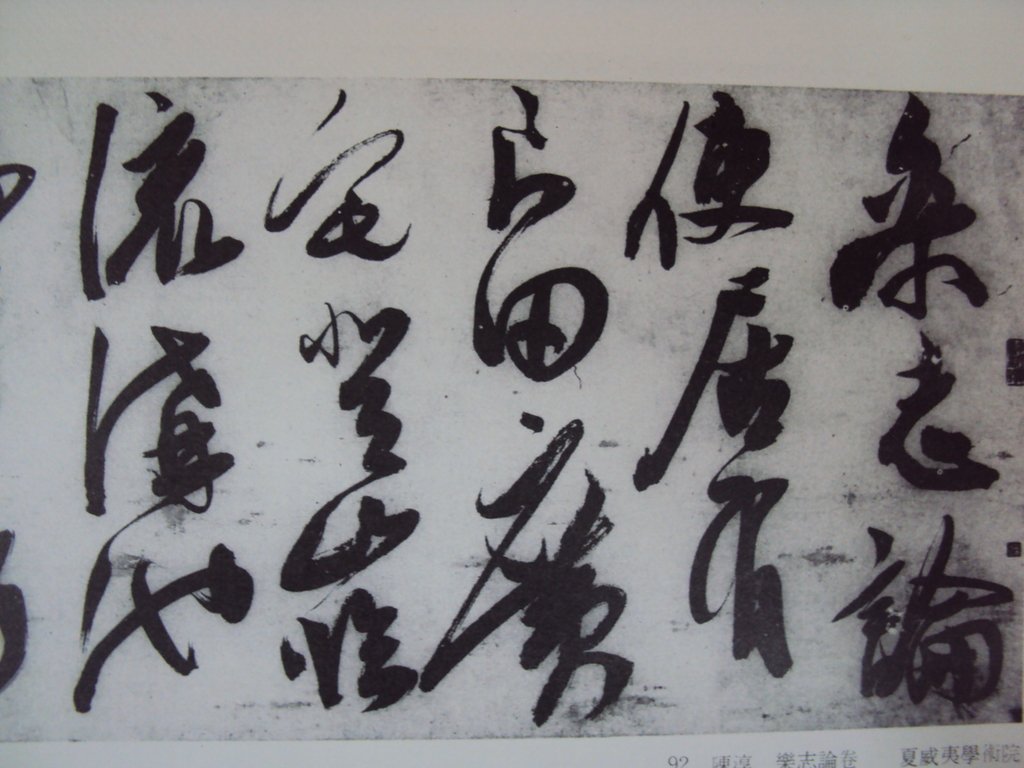 樂志論
使居有
良田廣
宅背山臨
流溝池
92 陳淳 樂志論卷 夏威夷學術院